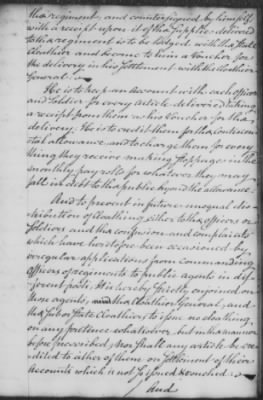 the regiment, and countersigned by himself
with a receipt upon it of the Supplies delivered
to the regiment is to be lodged with the State
Cloathier and become to him a Voucher for
the delivery in his Settlement with the Cloathier
General.
He is to keep an Account with each officer
and Soldier for every article delivered taking
a receipt from them as his Voucher for the
delivery. He is to credit them for the continen-
tal allowance, and to charge them for every
thing they receive making Stoppages in the
monthly pay rolls for whatever they may
fall in debt to the public beyond the allowance.
And to prevent in future unequal dis-
tribution of Cloathing either to the officers or
Soldiers and the confusion and complaints
which have heretofore been occasioned by
irregular applications from commanding
officers of regiments to public agents in dif-
ferent parts. It is hereby strictly enjoined on
those agents, the Cloathier General, and
the Sub or State Cloathiers, to issue no cloathing
on any pretence whatsoever, but in the manner
before prescribed, Nor shall any article be cre-
dited to either of them on Settlement of their
Accounts which is not so issued & vouched.
And